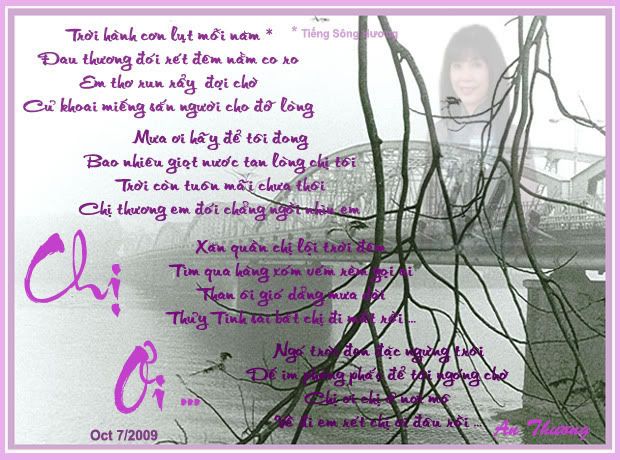 Trời hành cơn lụt mỗi năm *
* Tiếng Sông Hương
Đau thương đói rét đêm nằm co ro
Em thơ run rẩy đợi chờ
Củ khoai miếng sắn người cho đỡ lòng
Mưa ơi hãy để tôi đong
Bao nhiêu giọt nước tan lòng chị tôi
Trời còn tuôn mãi chưa thôi
Chị thương em đói chẳng ngồi nhìn em
Chị
Ơi ...
Xăn quần chị lội trời đêm
Tìm qua hàng xóm vém rèm gọi ai
Than ôi gió mưa
Thủy Tinh sai bắt chị đi mất rồi ...
Ngó trời đen đặc ngừng trôi
Để im phăng phắc để tôi ngóng chờ
Chị ơi chị ở nơi mô
Về đi em rét chị ơi đâu rồi ...
Oct 7/2009
An Thương